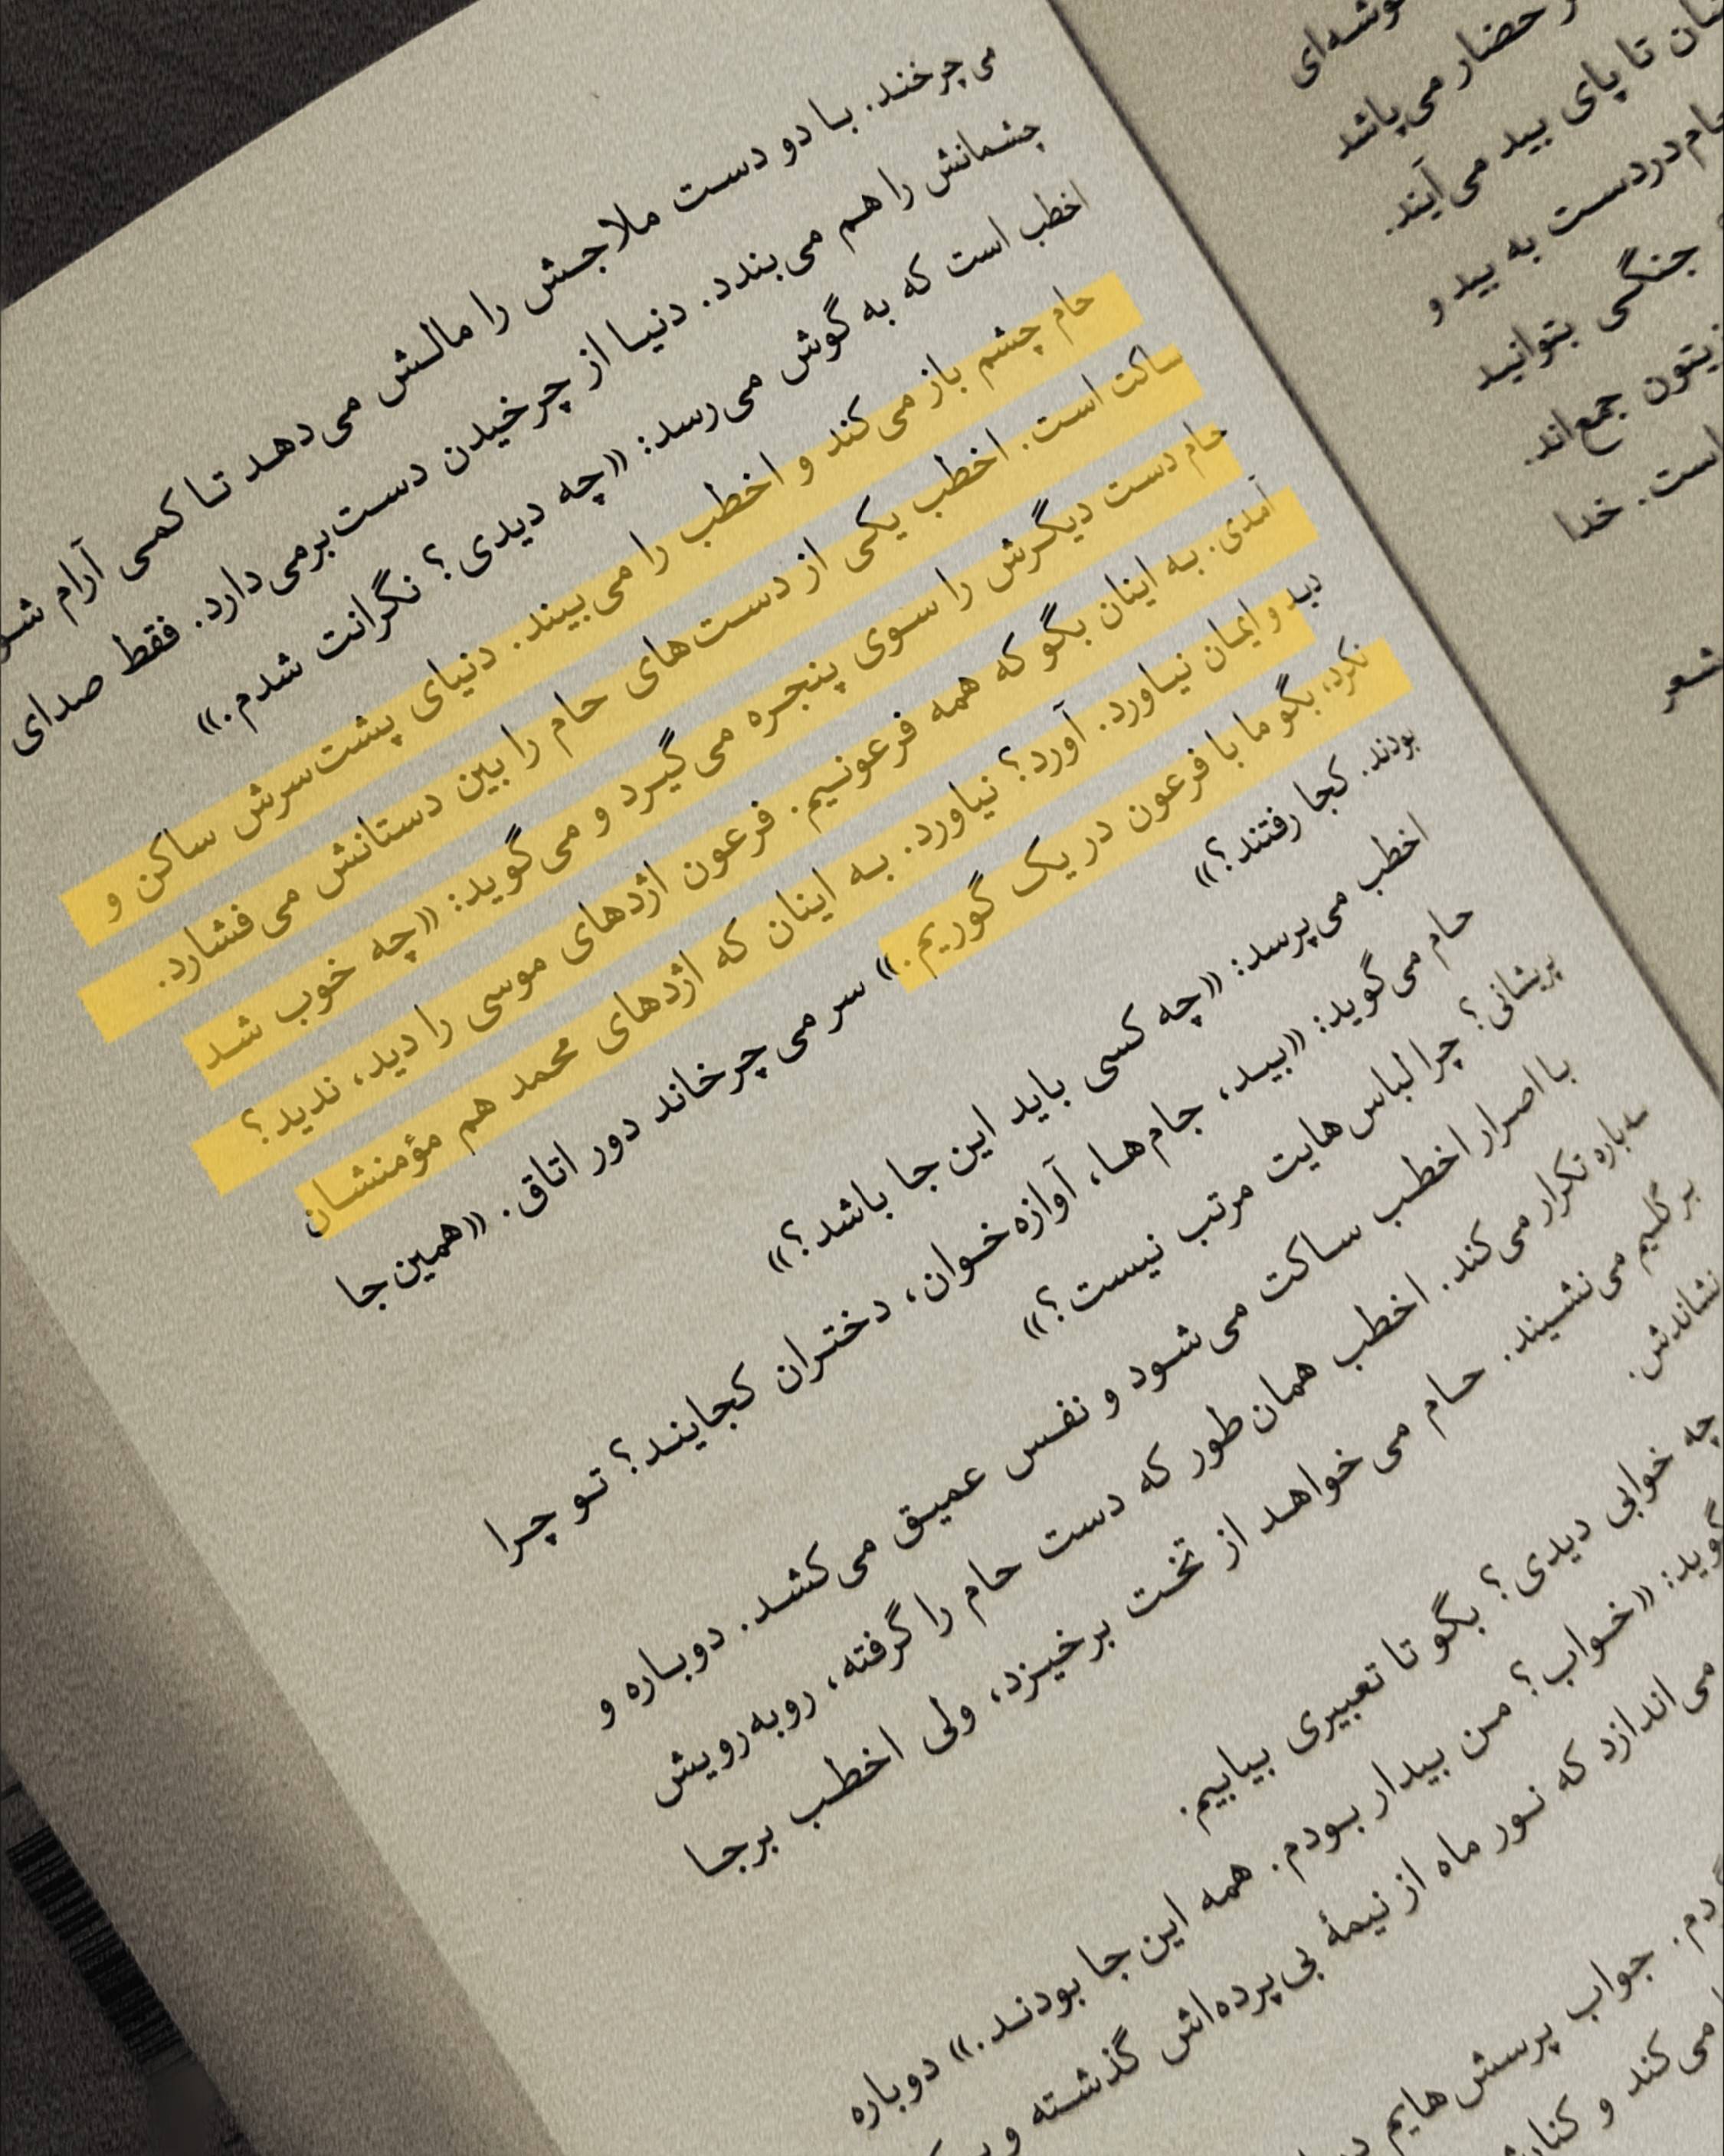 می‌چرخند. با دو دست ملاجش را مالش می‌دهد تا کمی آرام
چشمانش را هم می‌بندد. دنیا از چرخیدن دست برمی‌دارد. فقط صدای
اخطب است که به گوش می‌رسد: «چه دیدی؟ نگرانت شدم.»
حام چشم باز می‌کند و اخطب را می‌بیند. دنیای پشت‌سرش ساکن و
ساکت است. اخطب یکی از دست‌های حام را بین دستانش می‌فشارد.
حام دست دیگرش را سوی پنجره می‌گیرد و می‌گوید: «چه خوب شد
آمدی. به اینان بگو که همه فرعونیم. فرعون اژدهای موسی را دید، ندید؟
دید و ایمان نیاورد. آورد؟ نیاورد. به اینان که اژدهای محمد هم مؤمنشان
نکرد، بگو ما با فرعون در یک گوریم.» سر می‌چرخاند دور اتاق. «همین جا
بودند. کجا رفتند؟»
اخطب می‌پرسد: «چه کسی باید این جا باشد؟»
حام می‌گوید: «بید، جام‌ها، آوازه‌خوان، دختران کجایند؟ تو چرا
پریشانی؟ چرا لباس‌هایت مرتب نیست؟»
با اصرار اخطب ساکت می‌شود و نفس عمیق می‌کشد. دوباره و
سه‌باره تکرار می‌کند. اخطب همان طور که دست حام را گرفته، روبه‌رویش
بر گلیم می‌نشیند. حام می‌خواهد از تخت برخیزد، ولی اخطب برجا
نشاندش.
چه خوابی دیدی؟ بگو تا تعبیری بیابیم.
گوید: «خواب؟ من بیدار بودم. همه این جا بودند.» دوباره
می‌اندازد که نور ماه از نیمهٔ بی‌پرده‌اش گذشته و
جواب پرسش‌هایم
می‌کند و
حضار می‌پاشد
تا پای بید می‌آیند.
دردست به بید و
جنگی بتوانید
زیتون جمع‌اند.
است. خدا
شعر